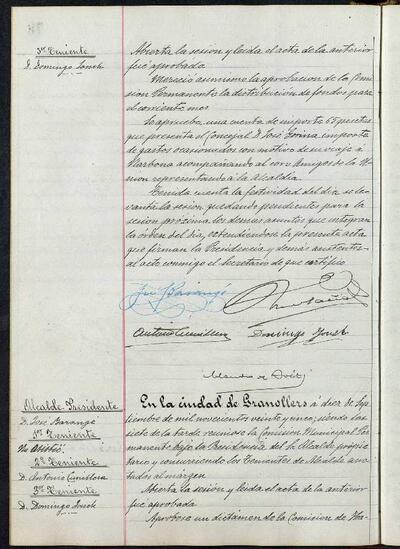 3er Teniente
D. Domingo Jonch
Abierta la sesion y leida el acta de la anterior
fué aprobada
Mereció asimismo la aprobacion de la Comi
sion Permanente la distribución de fondos para
el corriente mes
Se aprueba una cuenta de importe 65 pesetas
que presenta el Concejal D. José importe
de gastos ocasionados con motivo de su viaje á
Narbona acompañando al coro Amigos de la U
nion representando á la Alcaldia
Tenida cuenta la festividad del dia, se le
vanta la sesion, quedando pendientes para la
sesion próxima los demas asuntos que integran
la orden del dia, extendiendose la presente acta
que firman la Presidencia y demás asistentes
al acto conmigo el Secretario de que certifico
José Barangé
Antonio Cumellera
Domingo Jonch
Alcalde Presidente
D. José Barangé
1er Teniente
No Asistió
2º Teniente
D. Antonio Cumellera
3er Teniente
D. Domingo Jonch
En la ciudad de Granollers á diez de Sep
tiembre de mil novecientos veinte y cinco; siendo las
siete de la tarde reunióse la Comision Municipal Per
manente bajo la Presidencia del Sr Alcalde propie
tario y concurriendo los Tenientes de Alcalde ano
tados al margen
Abierta la sesión y leida el acta de la anterior
fue aprobada
Aprobose un dictamen de la Comision de Ha-